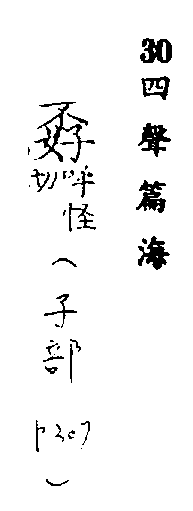 30四聲篇海
孬呼怪切（子部 p307）